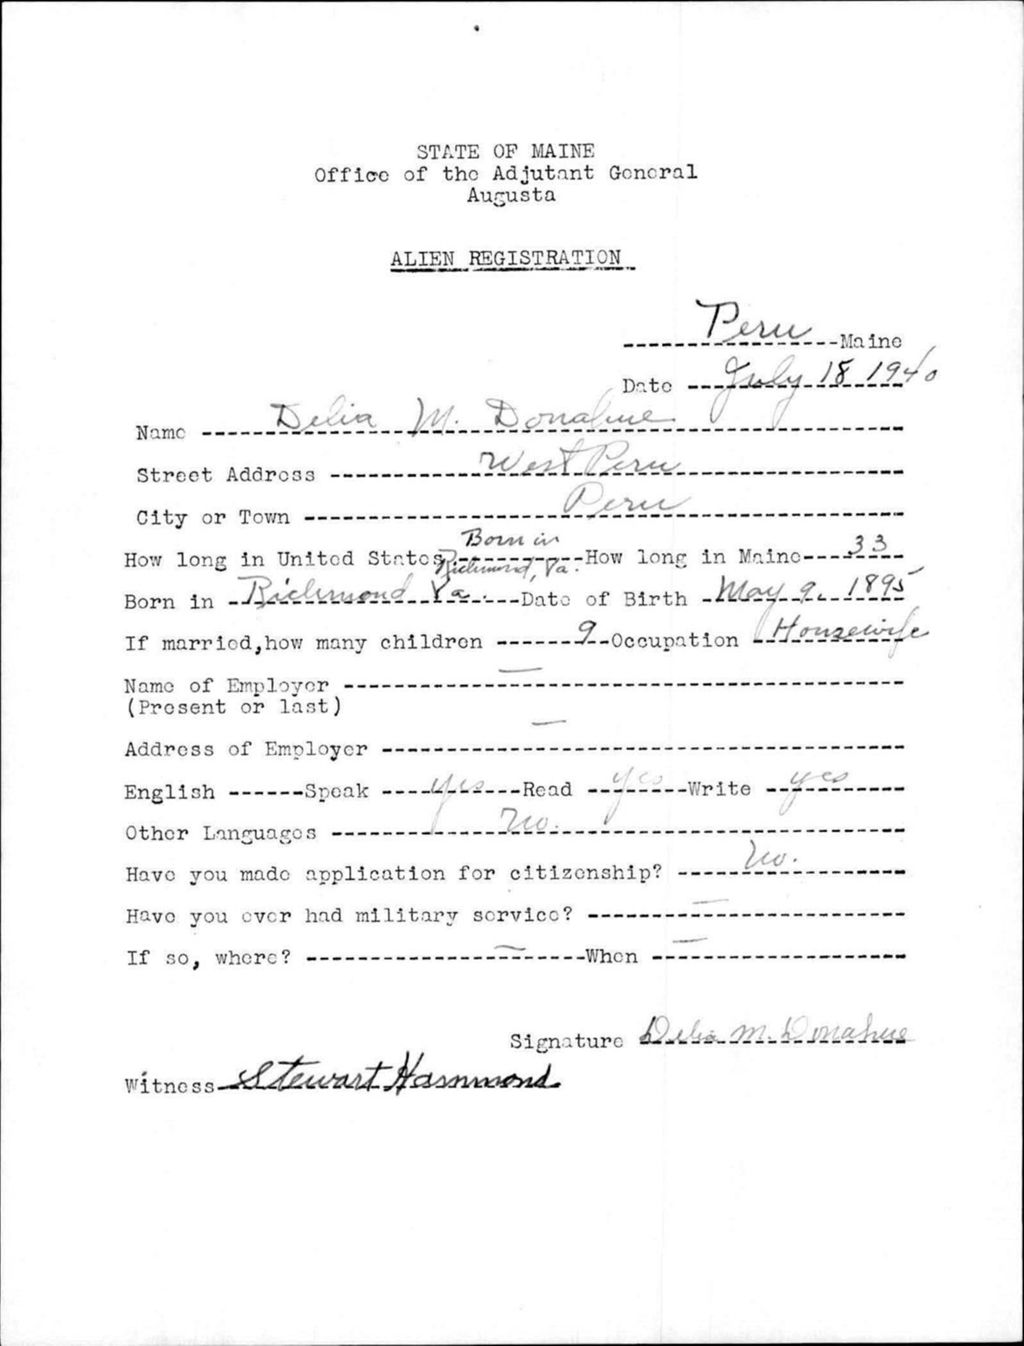 STATE OF MAINE
Office of the Adjutant General
Augusta
ALIEN REGISTRATION
Peru Maine
Date July 18 1940
Name Delia M. Donahue
Street Address West Peru
City or Town Peru
How long in United States Born in Richmond, Va. How long in Maine 33
Born in Richmond Va. Date of Birth May 9, 1895
If married, how many children 9 Occupation Housewife
Name of Employer —
(Present or last)
Address of Employer —
English Speak yes Read yes Write yes
Other Languages No.
Have you made application for citizenship? No.
Have you ever had military service? —
If so, where? — When —
Signature Delia M. Donahue
Witness Stewart Hammond